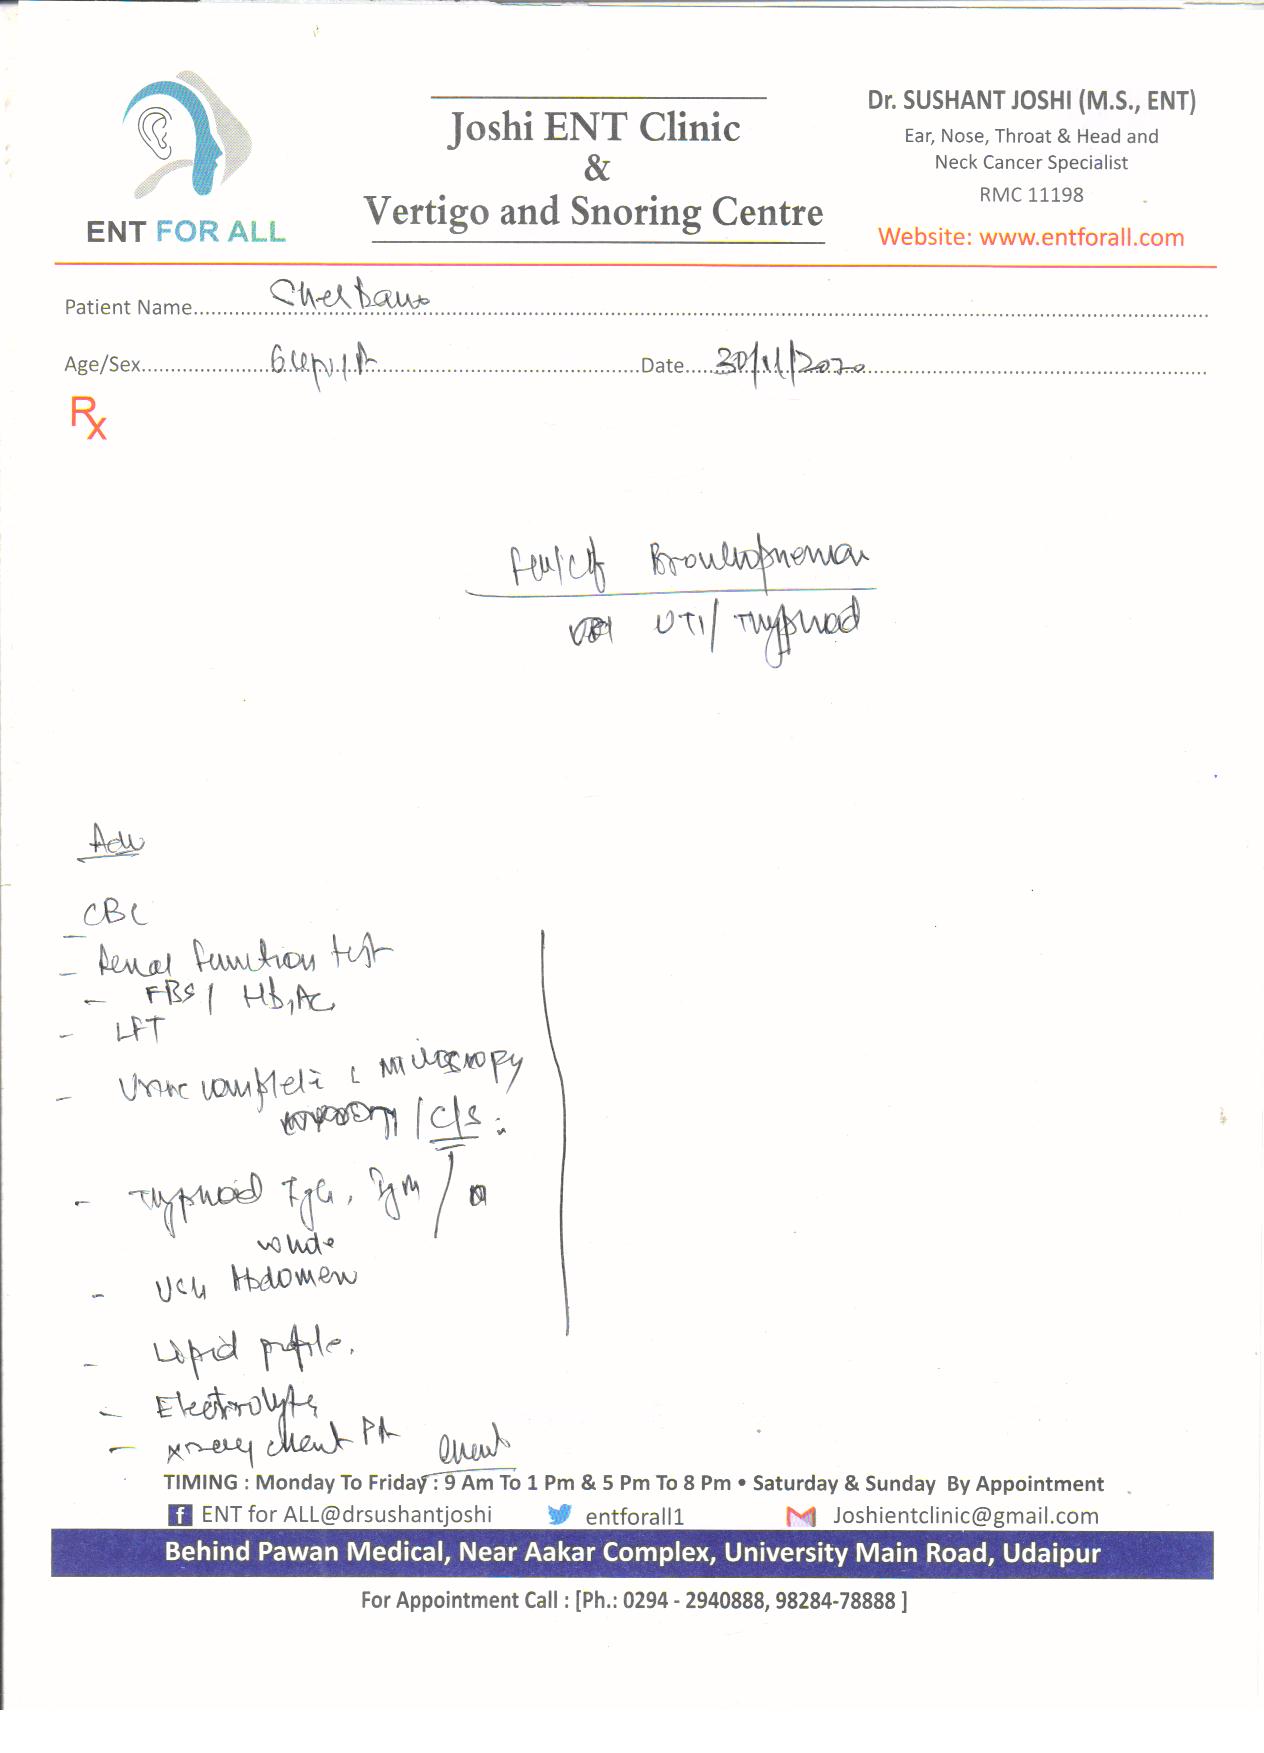 ENT FOR ALL
Joshi ENT Clinic
&
Vertigo and Snoring Centre
Dr. SUSHANT JOSHI (M.S., ENT)
Ear, Nose, Throat & Head and
Neck Cancer Specialist
RMC 11198
Website: www.entforall.com
Patient Name
Age/Sex
Date 30/11/2020
Rx
UTI/ Typhoid
Adv
CBC
- Renal function test
- FBS / Hb,AC
- LFT
- Urine complete c microscopy
/ C/S :
- Typhoid IgG, IgM /
- USG Abdomen
- Lipid profile.
- Electrolyte
- xray chest PA
TIMING : Monday To Friday : 9 Am To 1 Pm & 5 Pm To 8 Pm • Saturday & Sunday By Appointment
ENT for ALL@drsushantjoshi entforall1 Joshientclinic@gmail.com
Behind Pawan Medical, Near Aakar Complex, University Main Road, Udaipur
For Appointment Call : [Ph.: 0294 - 2940888, 98284-78888 ]